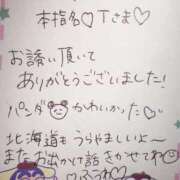 本指名♡Tさま♡
お誘い頂いて
ありがとうございました!
パンダかわいかった♡
北海道もうらやましいよ〜
またお出かけ話をきかせてね
ふうわ♡